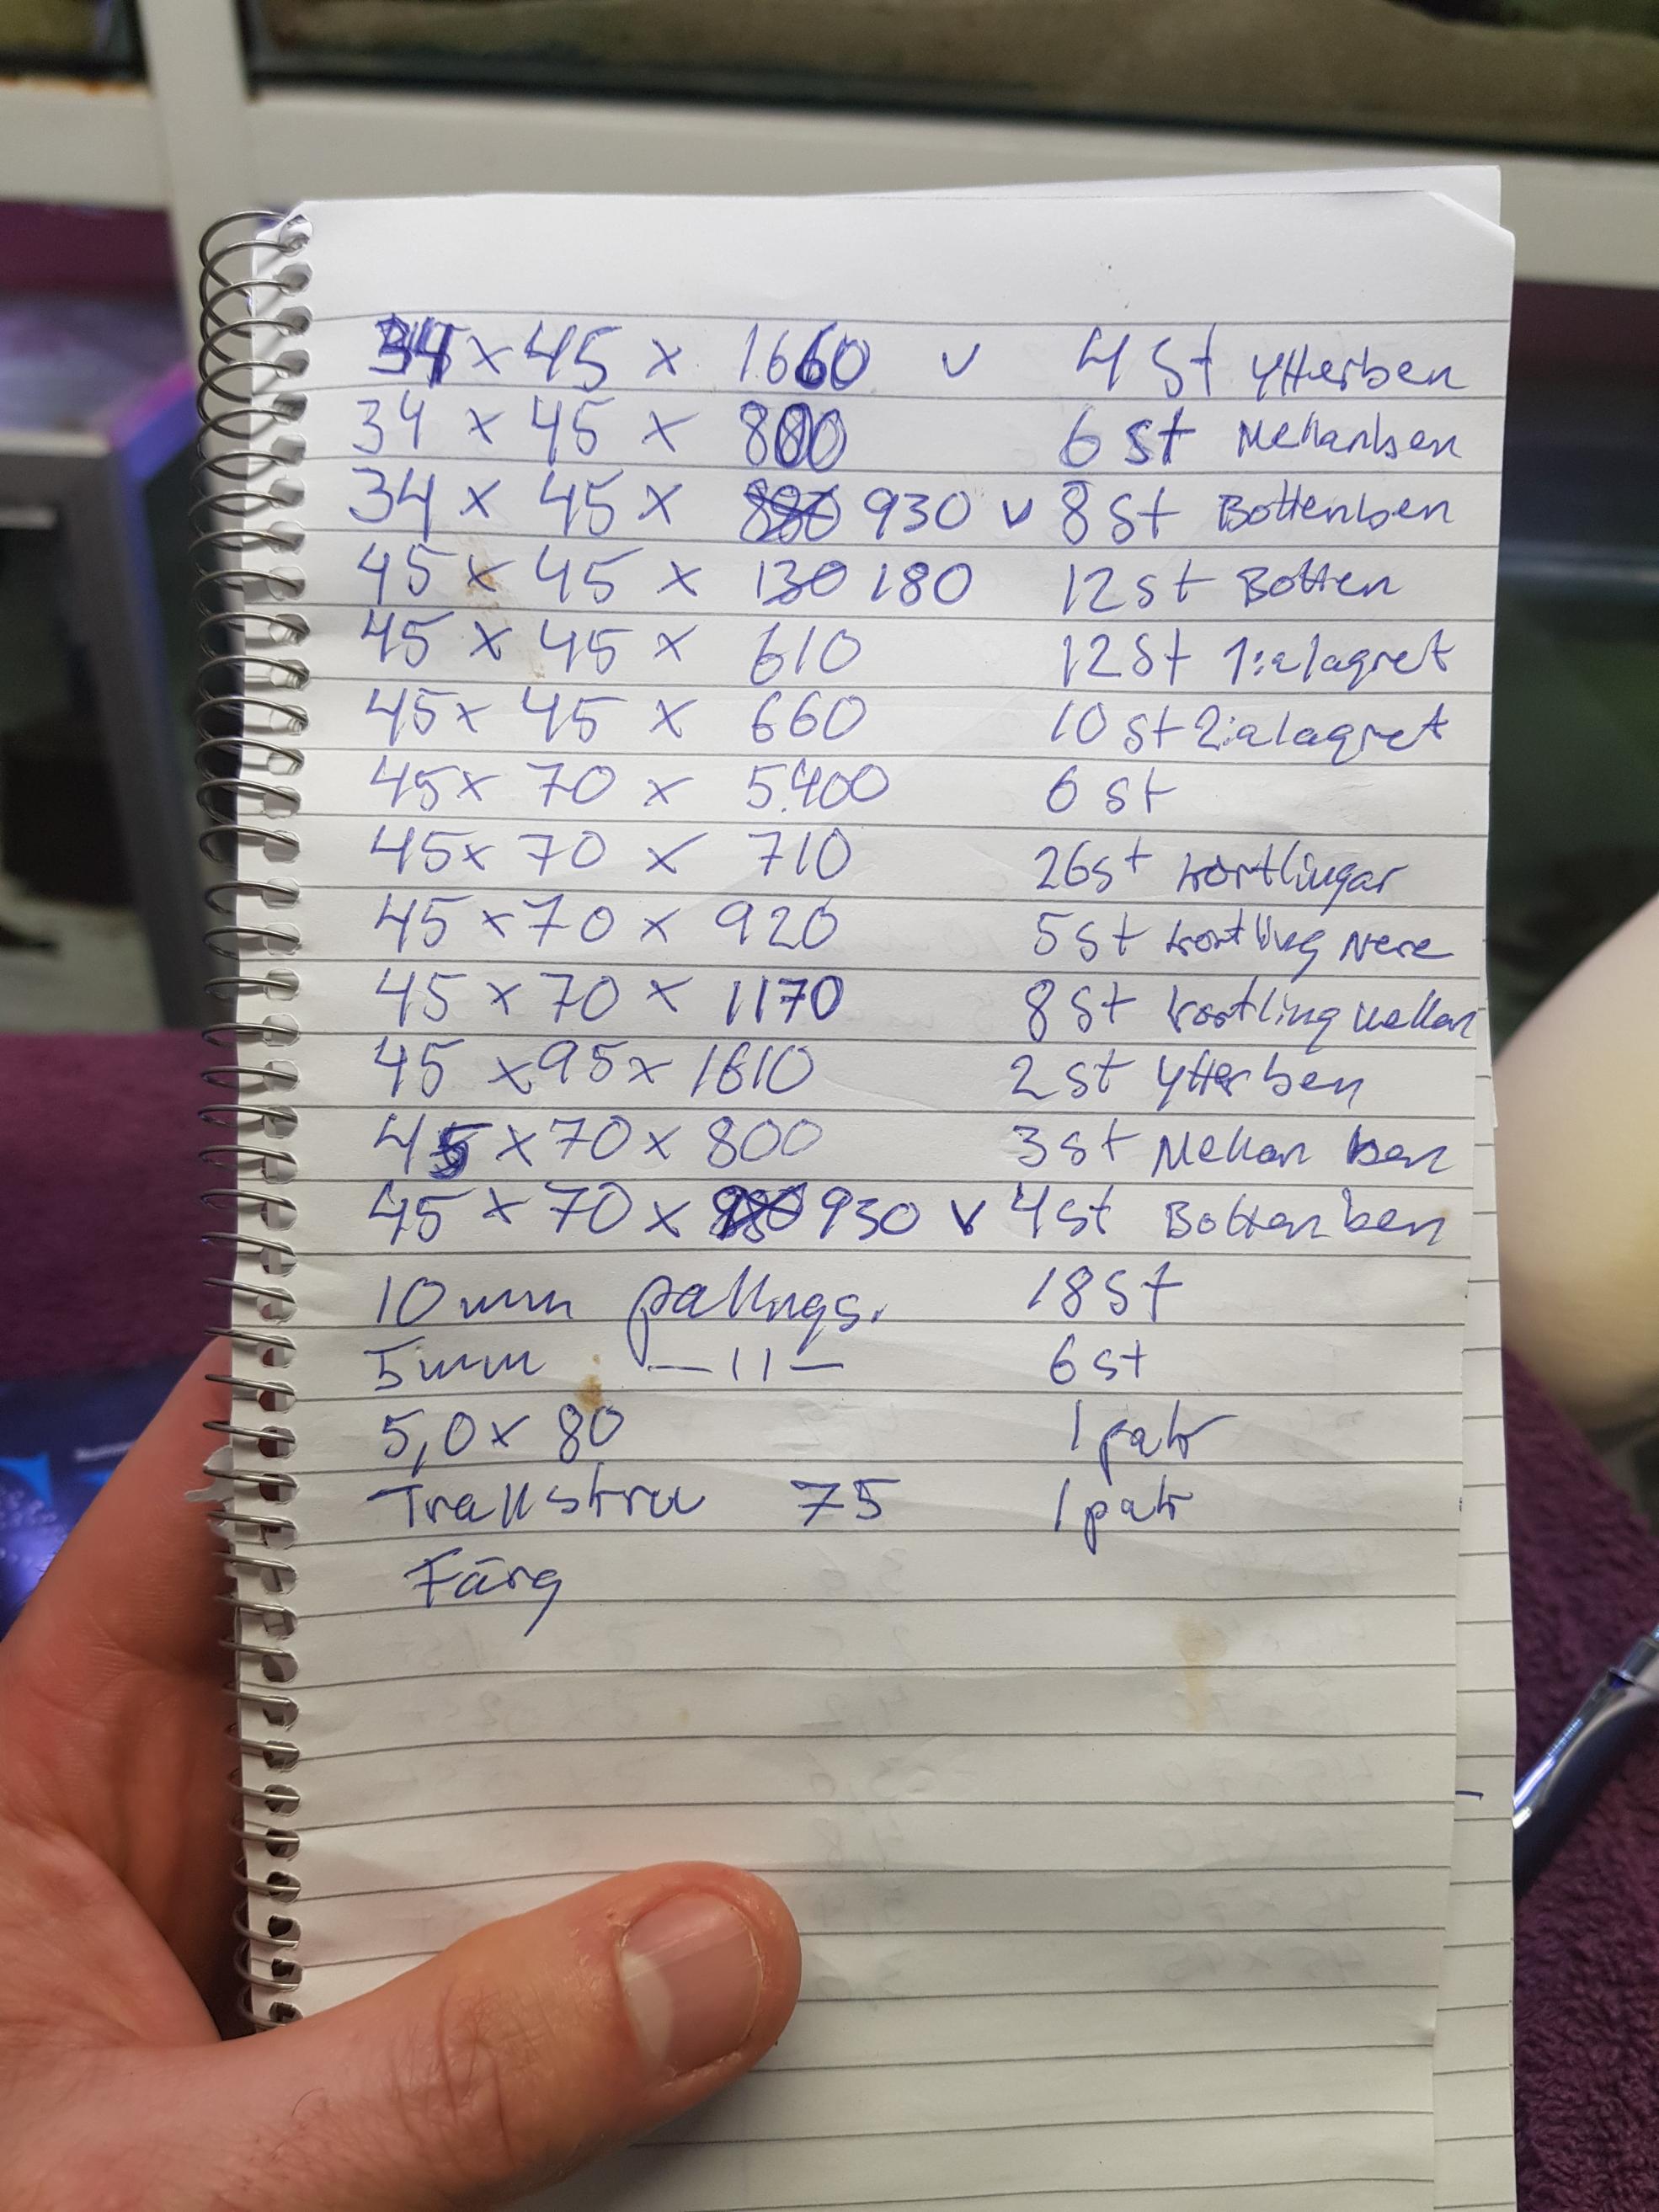 34 x 45 x 1660 v 4 st Ytterben
34 x 45 x 800 6 st Mellanben
34 x 45 x 880 930 v 8 st Bottenben
45 x 45 x 130 180 12 st Botten
45 x 45 x 610 12 st 1:a lagret
45 x 45 x 660 10 st 2:a lagret
45 x 70 x 5.400 6 st
45 x 70 x 710 26 st kortlingar
45 x 70 x 920 5 st kortling Nere
45 x 70 x 1170 8 st kortling Mellan
45 x 95 x 1610 2 st Ytterben
45 x 70 x 800 3 st Mellan ben
45 x 70 x 930 v 4 st Bottenben
10 mm pallngs. 18 st
5 mm —11— 6 st
5,0 x 80 1 pak
Trallskruv 75 1 pak
Färg